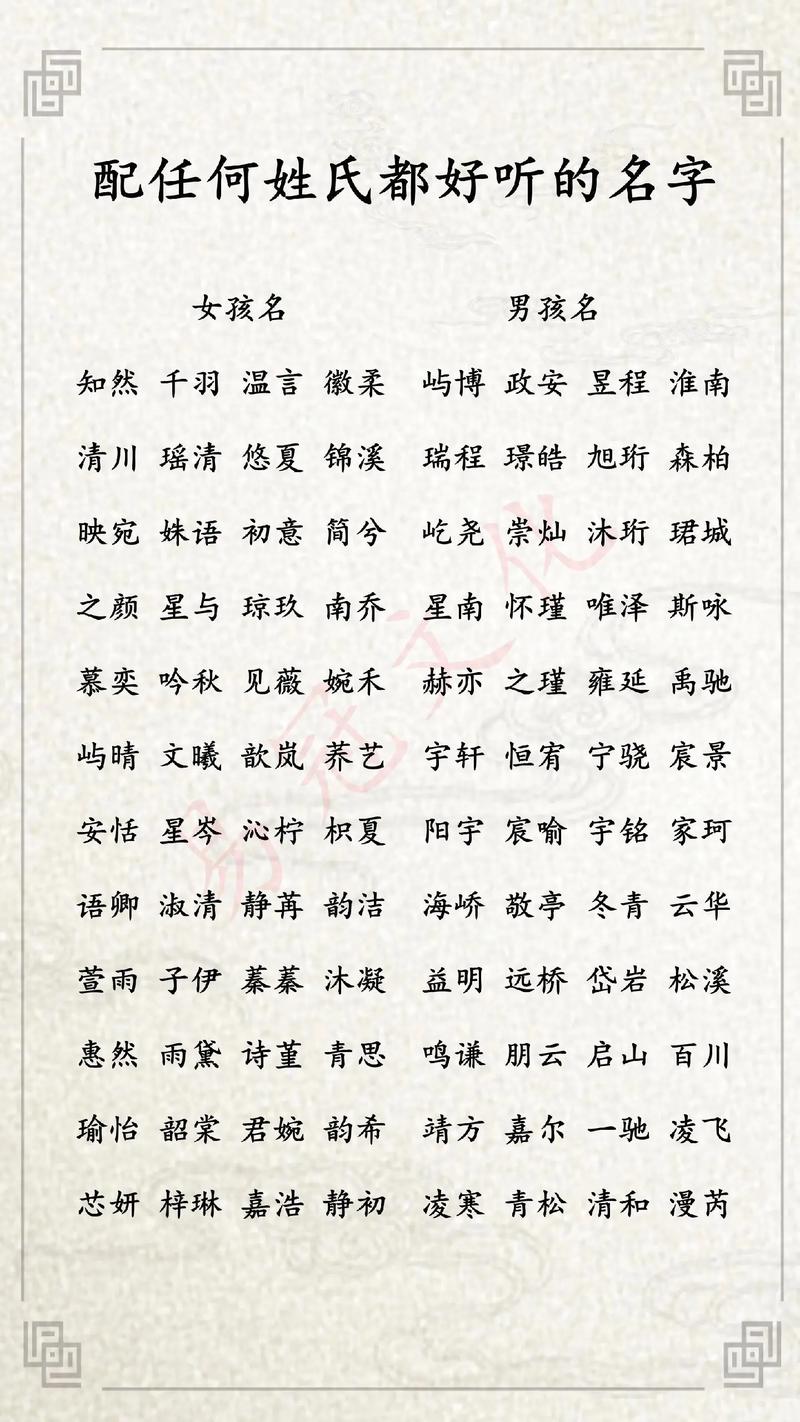 配任何姓氏都好听的名字
女孩名 男孩名
知然 千羽 温言 徽柔 屿博 政安 昱程 淮南
清川 瑶清 悠夏 锦溪 瑞程 璟皓 旭珩 森柏
映宛 姝语 初意 简兮 屹尧 崇灿 沐珩 珺城
之颜 星与 琼玖 南乔 星南 怀瑾 唯泽 斯咏
慕奕 吟秋 见薇 婉禾 赫亦 之瑾 雍延 禹驰
屿晴 文曦 歆岚 荞艺 宇轩 恒宥 宁骁 宸景
安恬 星岑 沁柠 枳夏 阳宇 宸喻 宇铭 家珂
语卿 淑清 静苒 韵洁 海峤 敬亭 冬青 云华
萱雨 子伊 蓁蓁 沐凝 益明 远桥 岱岩 松溪
惠然 雨黛 诗堇 青思 鸣谦 朋云 启山 百川
瑜怡 韶棠 君婉 韵希 靖方 嘉尔 一驰 凌飞
芯妍 梓琳 嘉浩 静初 凌寒 青松 清和 漫芮
易冠文化